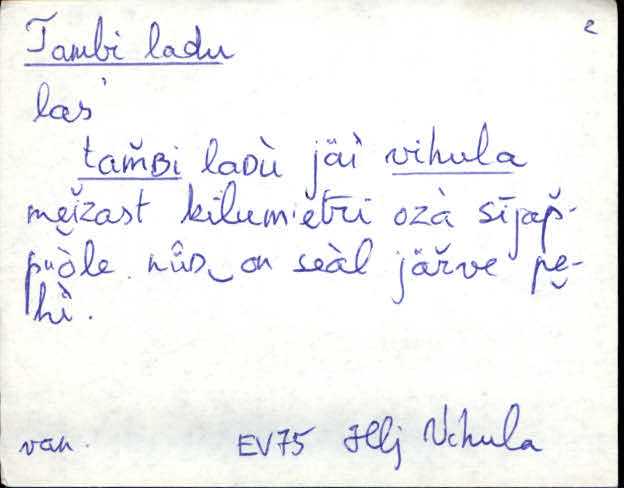 Tambi ladu 2
las'
tam̆ʙi laᴅù jäì vihula
mei̮žast kilumiĕtri ozà sījap̆-
puòle. nûᴅ‿on seàl jär̆ve pe̮-
hì.
van. EV75 Hlj Vihula